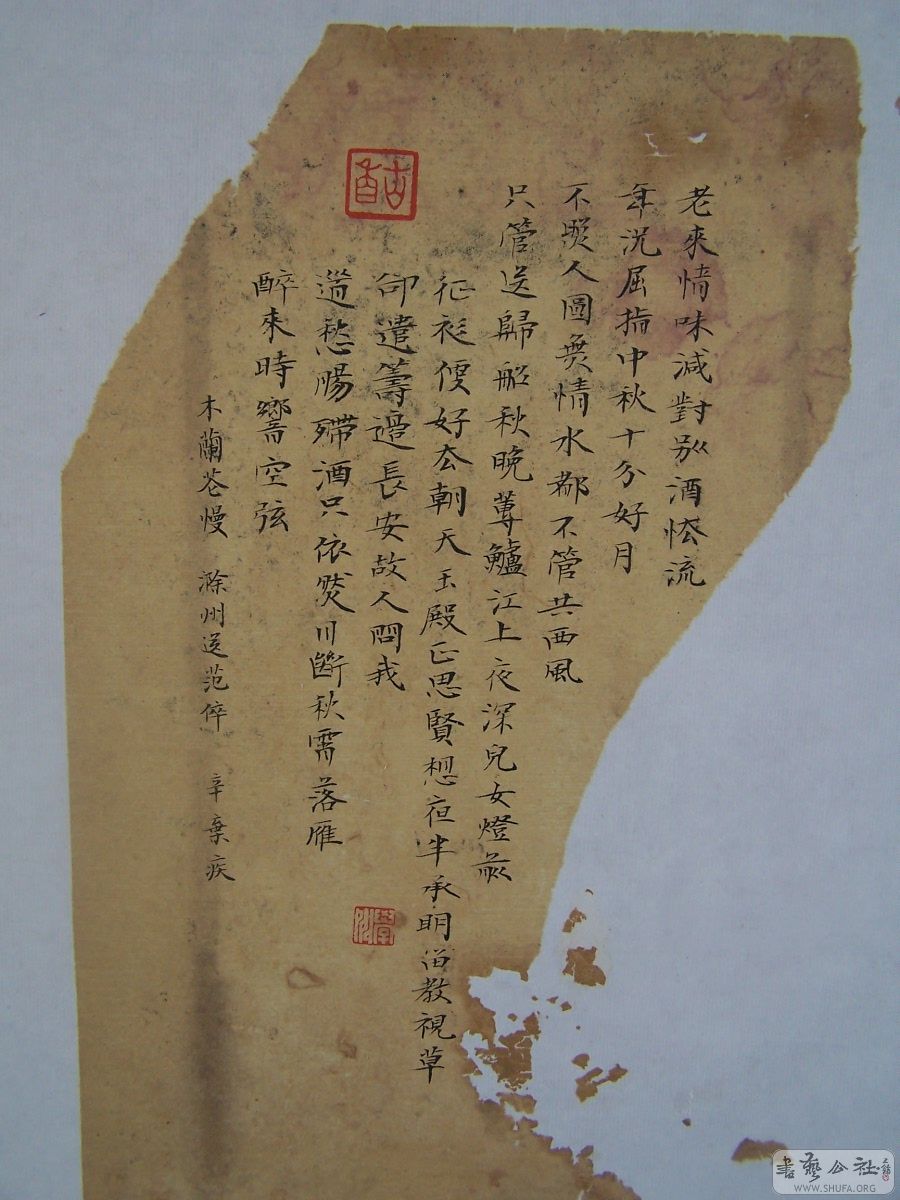 老來情味減對別酒怯流
年況屈指中秋十分好月
不照人圓無情水都不管共西風
只管送歸船秋晚蓴鱸江上夜深兒女燈前
征衫便好去朝天玉殿正思賢想夜半承明留教視草
卻遣籌邊長安故人問我
道愁腸殢酒只依然目斷秋霄落雁
醉來時響空弦
木蘭花慢 滁州送范倅 辛棄疾
古香
書藝公社
WWW.SHUFA.ORG